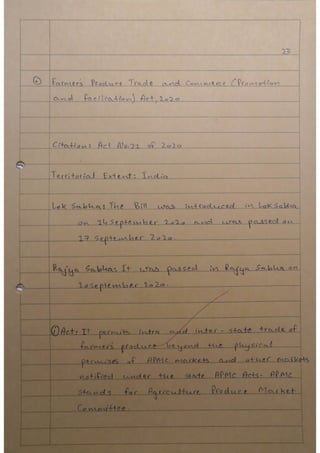 23
④ Farmer's Produce Trade and Commerce (Promotion
and Facilication) Act, 2020
Citation: Act No. 21 of 2020
Territorial Extent: India
Lok Sabha: The Bill was introduced in Lok Sabha
on 14 September 2020 and was passed on
17 September 2020.
Rajya Sabha: It was passed in Rajya Sabha on
20 September 2020.
Act: It permits intra and inter-state trade of
farmers produce beyond the physical
permises of APMC markets and other markets
notified under the state APMC Acts. APMC
stands for Agerculture Produce Market
Committee.